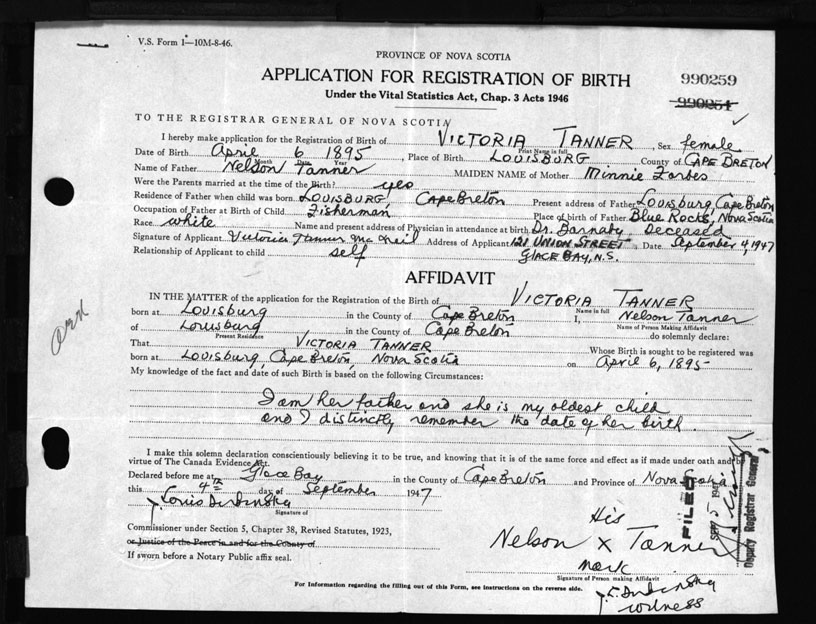 V.S. Form 1—10M-8-46.
PROVINCE OF NOVA SCOTIA
APPLICATION FOR REGISTRATION OF BIRTH
990259
990254
Under the Vital Statistics Act, Chap. 3 Acts 1946
TO THE REGISTRAR GENERAL OF NOVA SCOTIA
I hereby make application for the Registration of Birth of VICTORIA TANNER, Sex female
Print Name in full
Date of Birth April 6 1895, Place of Birth LOUISBURG County of CAPE BRETON
Month Date Year
Name of Father Nelson Tanner MAIDEN NAME of Mother Minnie Forbes
Were the Parents married at the time of the Birth? yes
Residence of Father when child was born LOUISBURG, Cape Breton Present address of Father Louisburg, Cape Breton
Occupation of Father at Birth of Child Fisherman Place of birth of Father Blue Rocks, Nova Scotia
Race white Name and present address of Physician in attendance at birth Dr. Deceased
Signature of Applicant Victoria Tanner McNeil Address of Applicant 121 UNION STREET, Date September 4, 1947
Relationship of Applicant to child self GLACE BAY, N.S.
AFFIDAVIT
IN THE MATTER of the application for the Registration of the Birth of VICTORIA TANNER
Name in full
born at Louisburg in the County of Cape Breton I, Nelson Tanner
Name of Person Making Affidavit
of Louisburg in the County of Cape Breton do solemnly declare:
Present Residence
That VICTORIA TANNER Whose Birth is sought to be registered was
born at Louisburg, Cape Breton, Nova Scotia on April 6, 1895
My knowledge of the fact and date of such Birth is based on the following Circumstances:
I am her father and she is my oldest child
and I distinctly remember the date of her birth.
I make this solemn declaration conscientiously believing it to be true, and knowing that it is of the same force and effect as if made under oath and by
virtue of The Canada Evidence Act.
Declared before me at Glace Bay in the County of Cape Breton and Province of Nova Scotia
this 4th day of September 1947
Louis
Signature of
Commissioner under Section 5, Chapter 38, Revised Statutes, 1923,
or Justice of the Peace in and for the County of
If sworn before a Notary Public affix seal.
His
Nelson X Tanner
mark
Signature of Person making Affidavit
witness
For Information regarding the filling out of this Form, see instructions on the reverse side.
FILED
SEP 5 1947
Deputy Registrar General